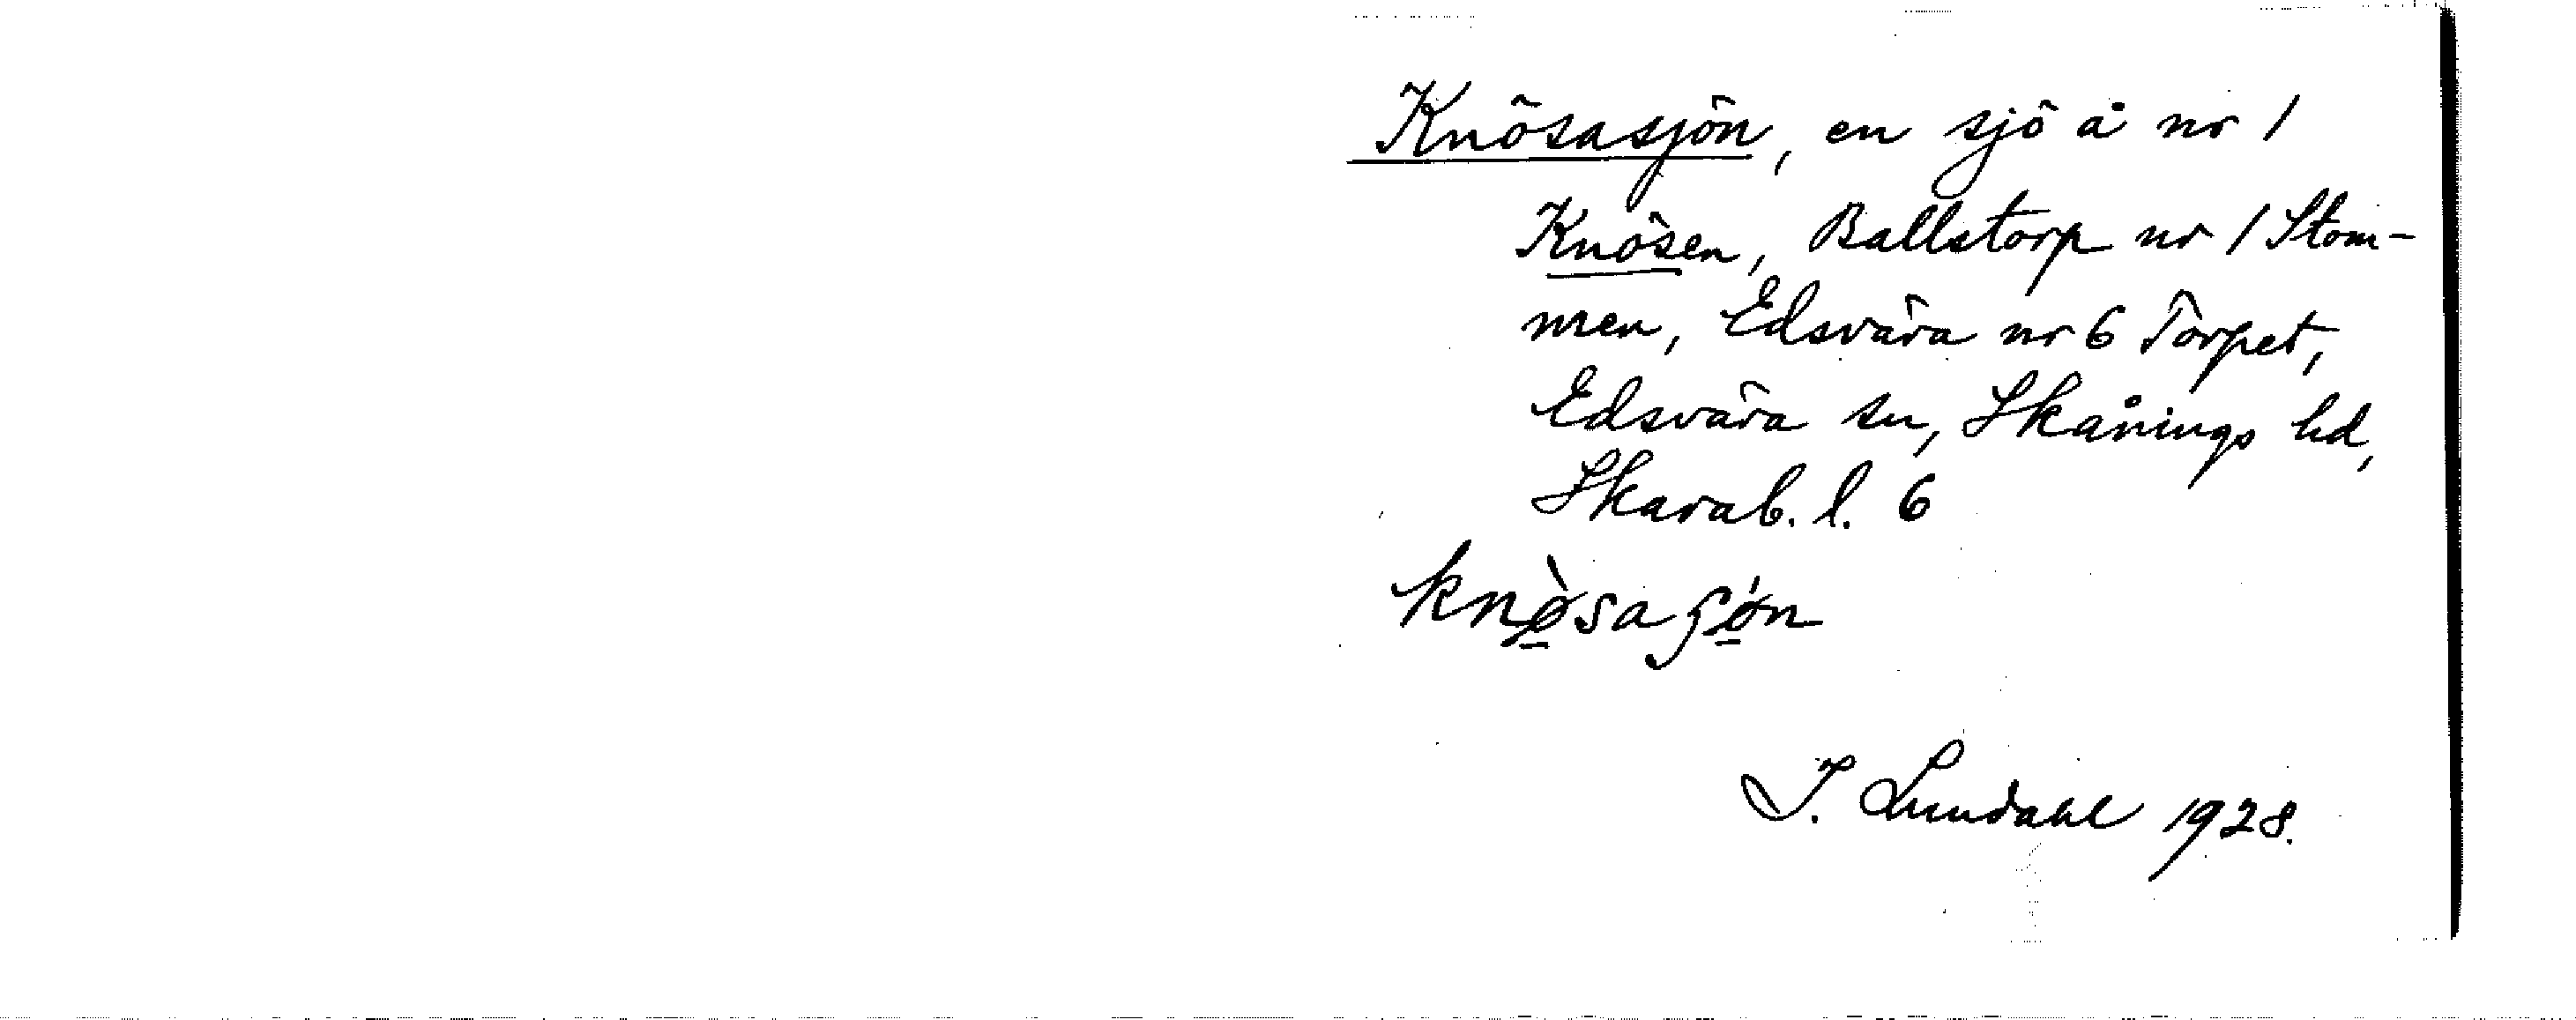 Knösasjön, en sjö å nr 1
Knösen, Ballstorp nr 1 Stom-
men, Edsvära nr 6 Torpet,
Edsvära sn, Skånings hd,
Skarab. l. 6
knø̀saʃǿn
I. Lundahl 1928.